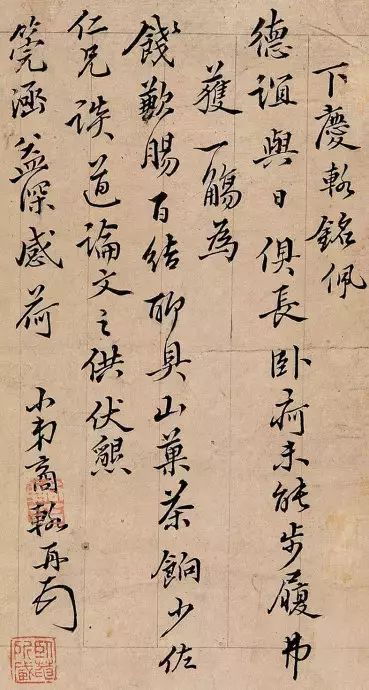 下慶輅銘佩
德誼與日俱長卧疴未能步履弗
獲一觴為
餞歉腸百結聊具山菓茶餉少佐
仁兄談道論文之供伏懇
筦涵益深感荷 小弟商輅再拜